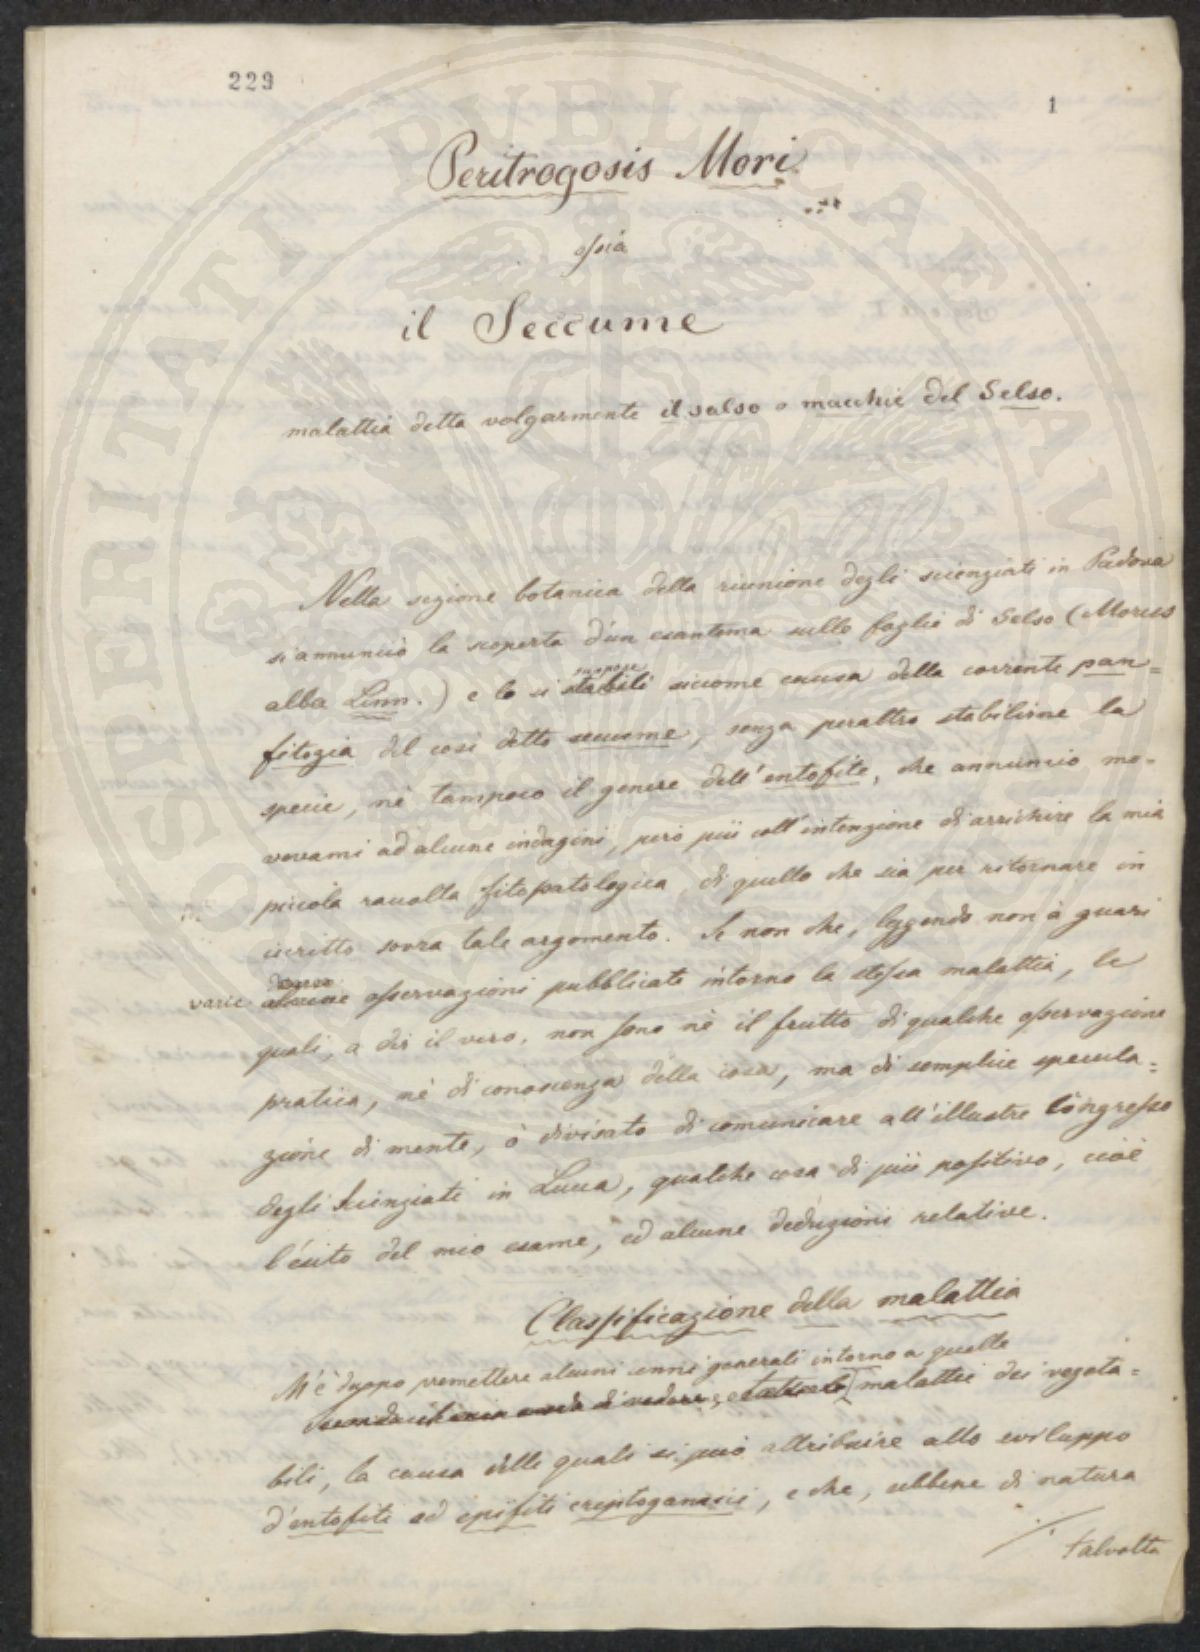 229
1
Peritrogosis Mori
ossia
il Seccume
malattia detta volgarmente il salso o macchie del Gelso.
Nella sezione botanica della riunione degli scienziati in Padova
s'annunciò la scoperta d'un esantema sulle foglie di Gelso (Morus
alba Linn.) e lo si stabilì siccome causa della corrente pan=
suppose
fitozia del così detto seccume, senza peraltro stabilirne la
specie, nè tampoco il genere dell'entofite, che annuncio mo-
vevami ad alcune indagini, però più coll'intenzione di arrichire la mia
piccola raccolta fitopatologica, di quello che sia per ritornare in
iscritto sovra tale argomento. Se non che, leggendo non à guari
varie alcune osservazioni pubblicate intorno la stessa malattia, le
quali, a dir il vero, non sono nè il frutto di qualche osservazione
pratica, nè di conoscenza della cosa, ma di semplice specula=
zione di mente, ò divisato di comunicare all'illustre Congresso
degli Scienziati in Lucca, qualche cosa di più positivo, cioè
l'ésito del mio esame, ed alcune deduzioni relative.
Classificazione della malattia
M'è duopo premettere alcuni cenni generali intorno a quelle
malattie dei vegeta=
bili, la causa delle quali si può attribuire allo sviluppo
d'entofiti ed epifiti criptogamici, e che, sebbene di natura
talvolta
SPERITATI PUBLICAE